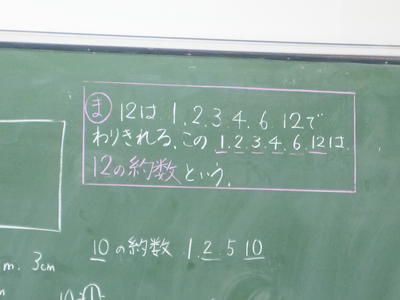 ま 12は 1.2.3.4.6.12で
わりきれる。この 1.2.3.4.6.12は
12の約数という。
10の約数 1.2 5 10
m. 3cm